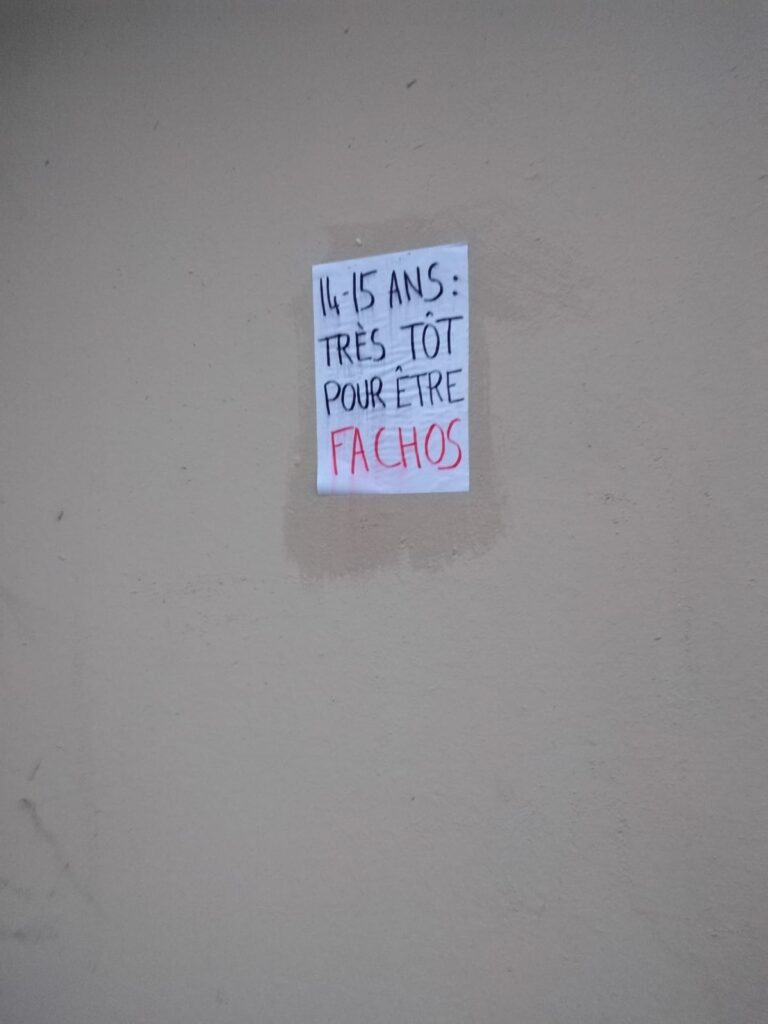 14-15 ANS :
TRÈS TÔT
POUR ÊTRE
FACHOS